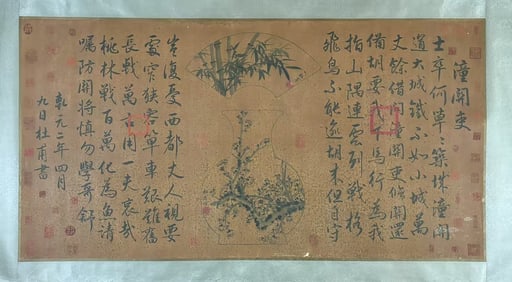 潼關吏
士卒何草築城潼關
道大城鐵不如小城萬
丈餘借問潼關吏修關還
備胡要我下馬行為我
指山隅連雲列戰格
飛鳥不能踰胡來但自守
豈復憂西都丈人視要
處窄狹容單車艱難奮
長戟萬古用一夫哀哉
桃林戰百萬化為魚請
囑防關將慎勿學哥舒
乾元二年四月
九日杜甫書